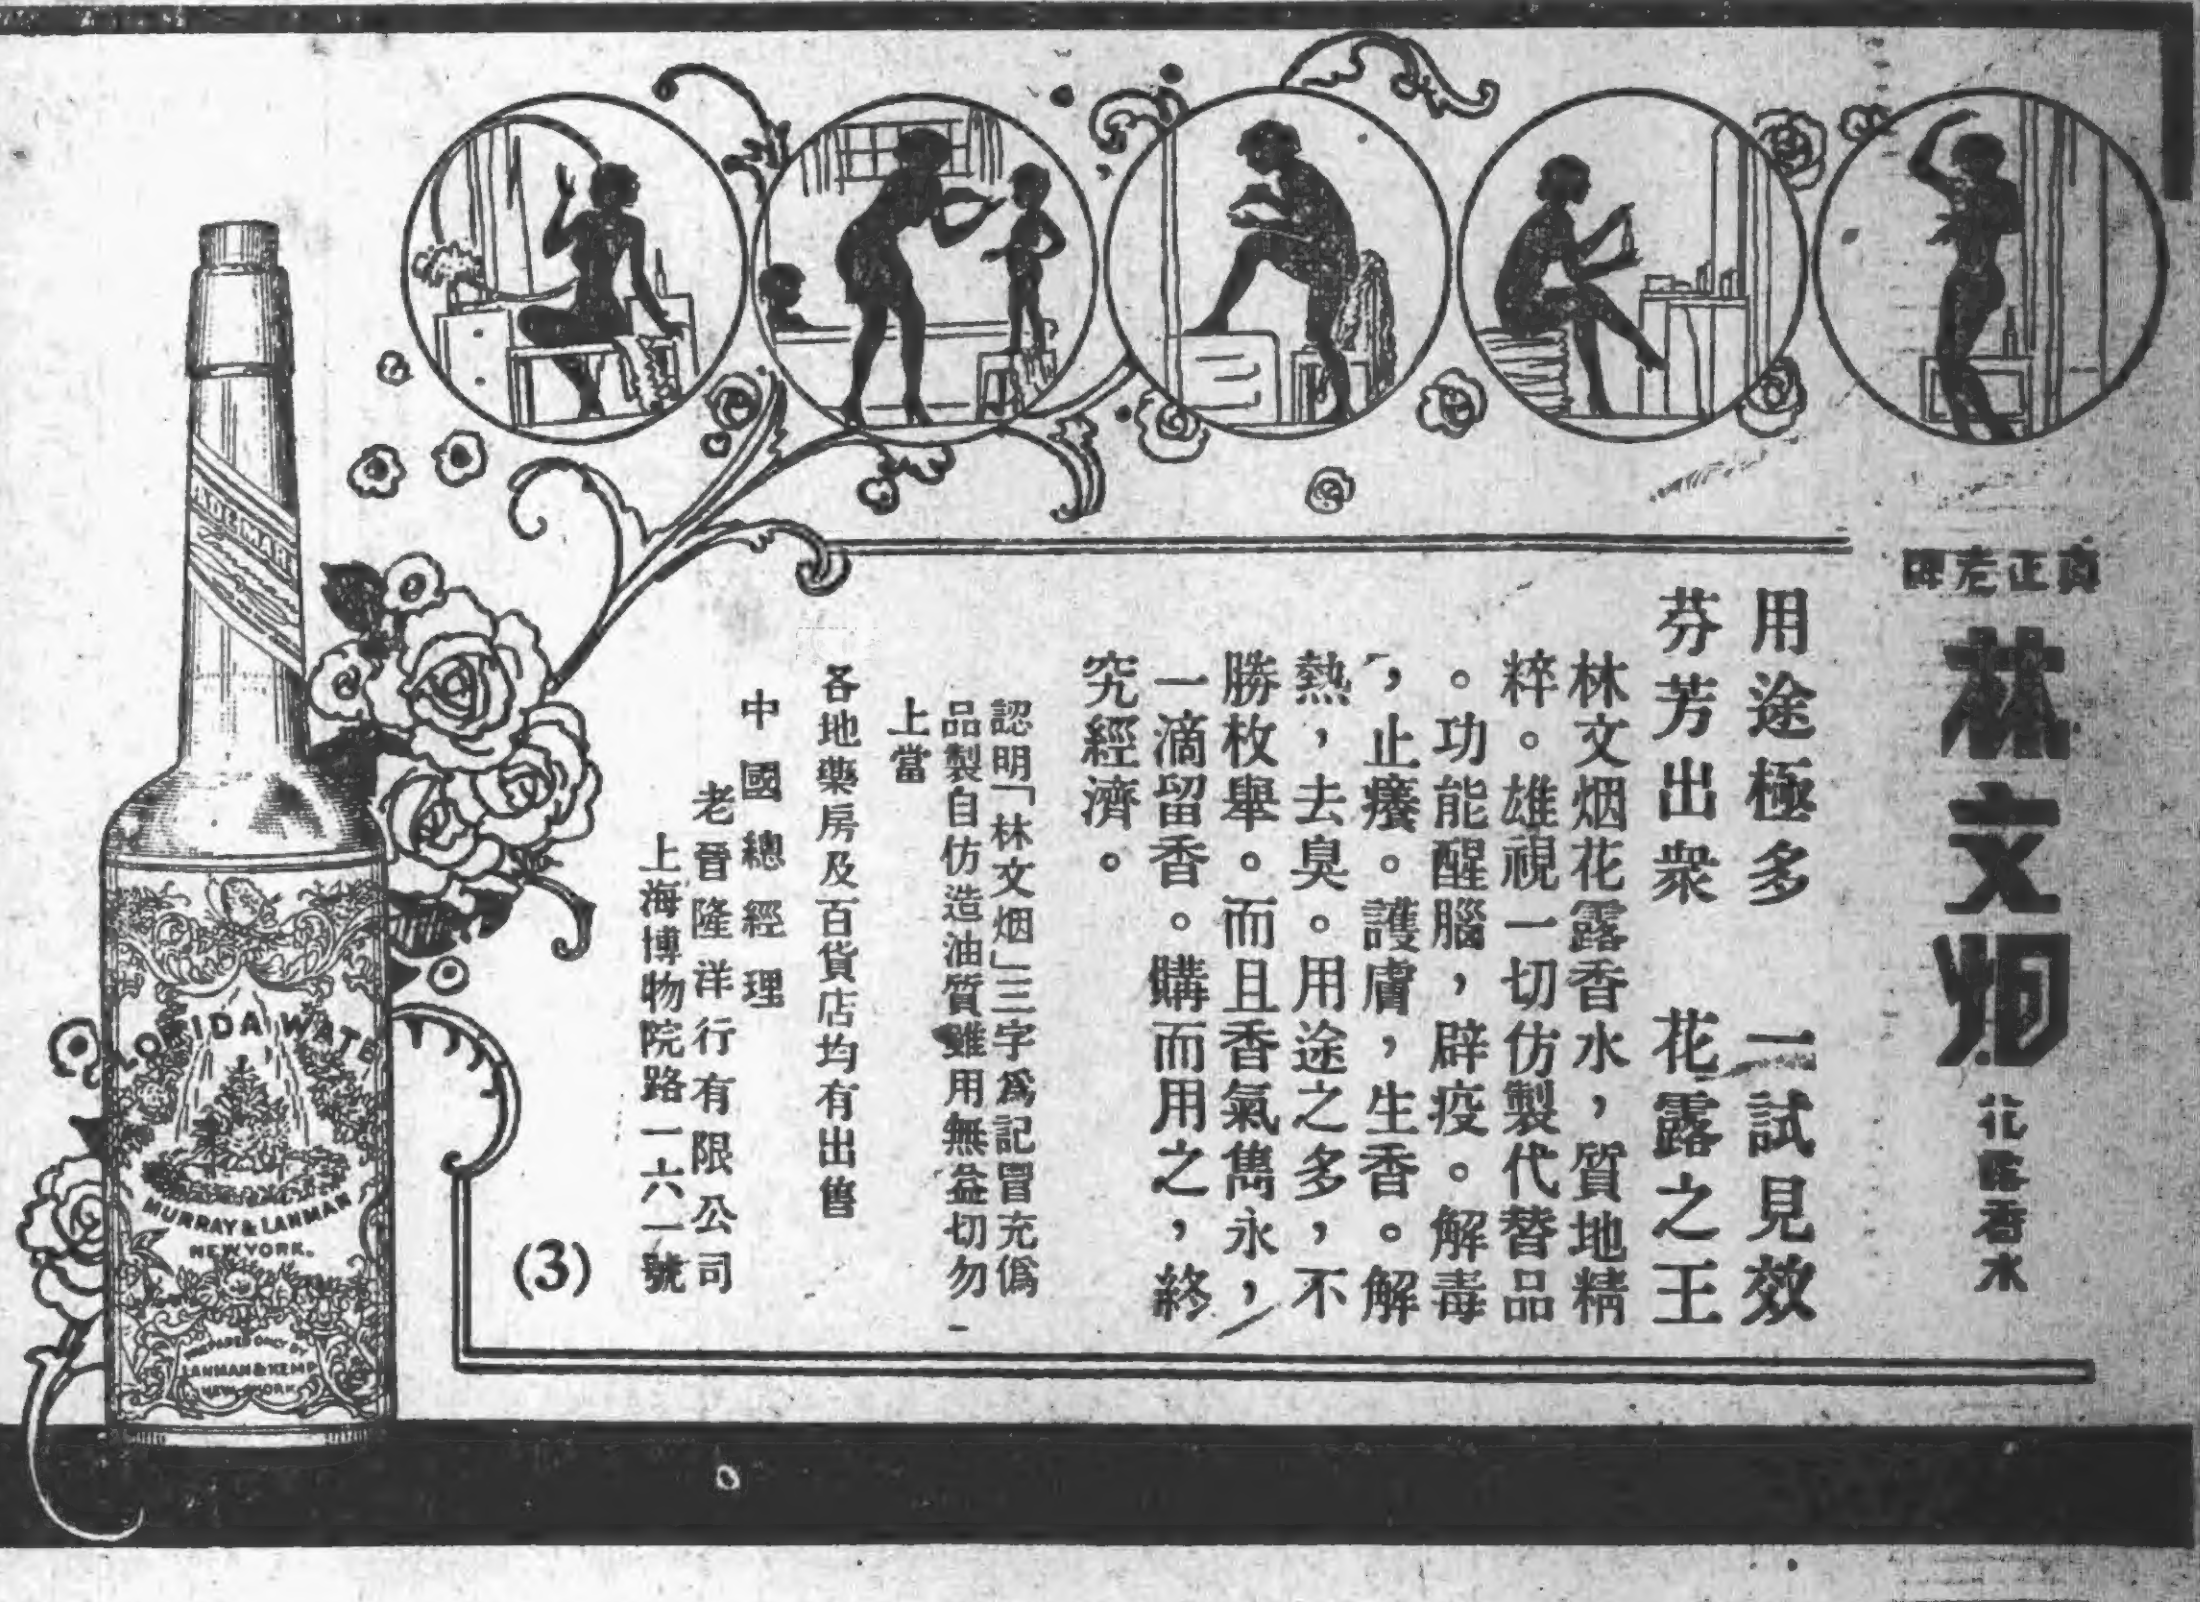 真正老牌
林文烟
花露香水
用途極多　一試見效
芬芳出衆　花露之王
林文烟花露香水，質地精
粹。雄視一切仿製代替品
。功能醒腦，辟疫。解毒
，止癢。護膚，生香。解
熱，去臭。用途之多，不
勝枚舉。而且香氣雋永，
一滴留香。購而用之，終
究經濟。
認明「林文烟」三字爲記冒充僞
品製自仿造油質雖用無益切勿
上當
各地藥房及百貨店均有出售
中國總經理
老晉隆洋行有限公司
上海博物院路一六一號
(3)
ADE MAR
LORIDA WATE
MURRAY & LANMAN
NEW YORK.
LANMAN & KEMP
NEW YORK